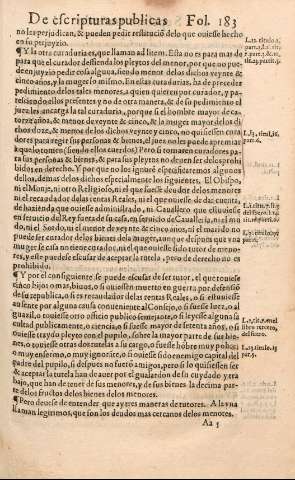 De escripturas publicas Fol. 183
no la perjudican, & pueden pedir restitució delo que ouiesse hecho
en su perjuyzio.
¶ Y la otra curaduria es, que llaman ad litem. Esta no es para mas de
para que el curador defienda los pleytos del menor, por que no pue-
den en juyzio pedir cosa alguna, siendo menor delos dichos veynte &
cinco años, y la muger lo mismo. En esta curaduria, ha de preceder
pedimiento delos tales menores, o de otra qualquier persona, y pa-
resciendo ellos presentes y no de otra manera, & de su pedimiento el
juez les encarga la tal curaduria, porque si el hombre mayor de ca-
torze años, & menor de veynte & cinco, & la muger mayor delos di-
chos doze, & menor de los veynte y cinco, no quisiessen cura
dores para regir sus personas & bienes, el juez no los puede apremiar
a que lo tomen (siendo ellos cuerdos) Pero si tomaren curadores pa
ra sus personas & bienes, & para sus pleytos no deuen ser delos prohi
bidos en derecho. Y por que no los ignoré especificaremos algunos
dellos, demas delos dichos especialmente los siguientes. El Obispo,
ni el Monje, ni otro Religioso, ni el que fuesse deudor delos menores
ni el recaudador delas rentas Reales, ni el que ouiesse de dar cuenta,
de hazienda que ouiesse administrado, ni Cauallero que estuuiesse
en seruicio del Rey fuera de su casa, en seruicio de Caualleria, ni el mu
do, ni el Sordo, ni el menor de veynte & cinco años, ni el marido no
puede ser curador delos bienes dela muger, aunque despues que va
muger se casa no tiene curador, ni el que ouiesse sido tutor de meno-
res, y este se puede escusar de aceptar la tutela, pero de derecho no es
prohibido.
¶ Y por el consiguiente se puede escusar de ser tutor, el que touiesse
cinco hijos o mas, biuos, o si ouiessen muerto en guerra por defensió
de su republica, o si es recaudador delas rentas Reales, o si estuuiesse
ausente por alguna causa conueniente al Consejo, o fuesse juez, o al
guazil, o touiesse otro officio publico semejante, o si leyesse alguna fa
cultad publicamente, o ciencia, o si fuesse mayor de setenta años, o si
ouiesse traydo pleyto con el pupilo, sobre la mayor parte de sus bie-
nes, o touiesse otras dos tutelas a su cargo, o fuesse hóbre muy pobre,
o muy enfermo, o muy ignorãte, o si ouiesse sido enemigo capital del
padre del pupilo, si despues no fuero amigos, pero si lo quisiessen ser
& aceptar la tutela han de auer por el gualardon de su cuydado y tra
bajo, que han de tener de sus menores, y de sus bienes la decima par-
te delos fructos delos bienes delos menores.
¶ Pero deuese de entender que ay tres maneras de tutores. A la vna
llaman legitimos, que son los deudos mas cercanos delos menores.
Aa 3